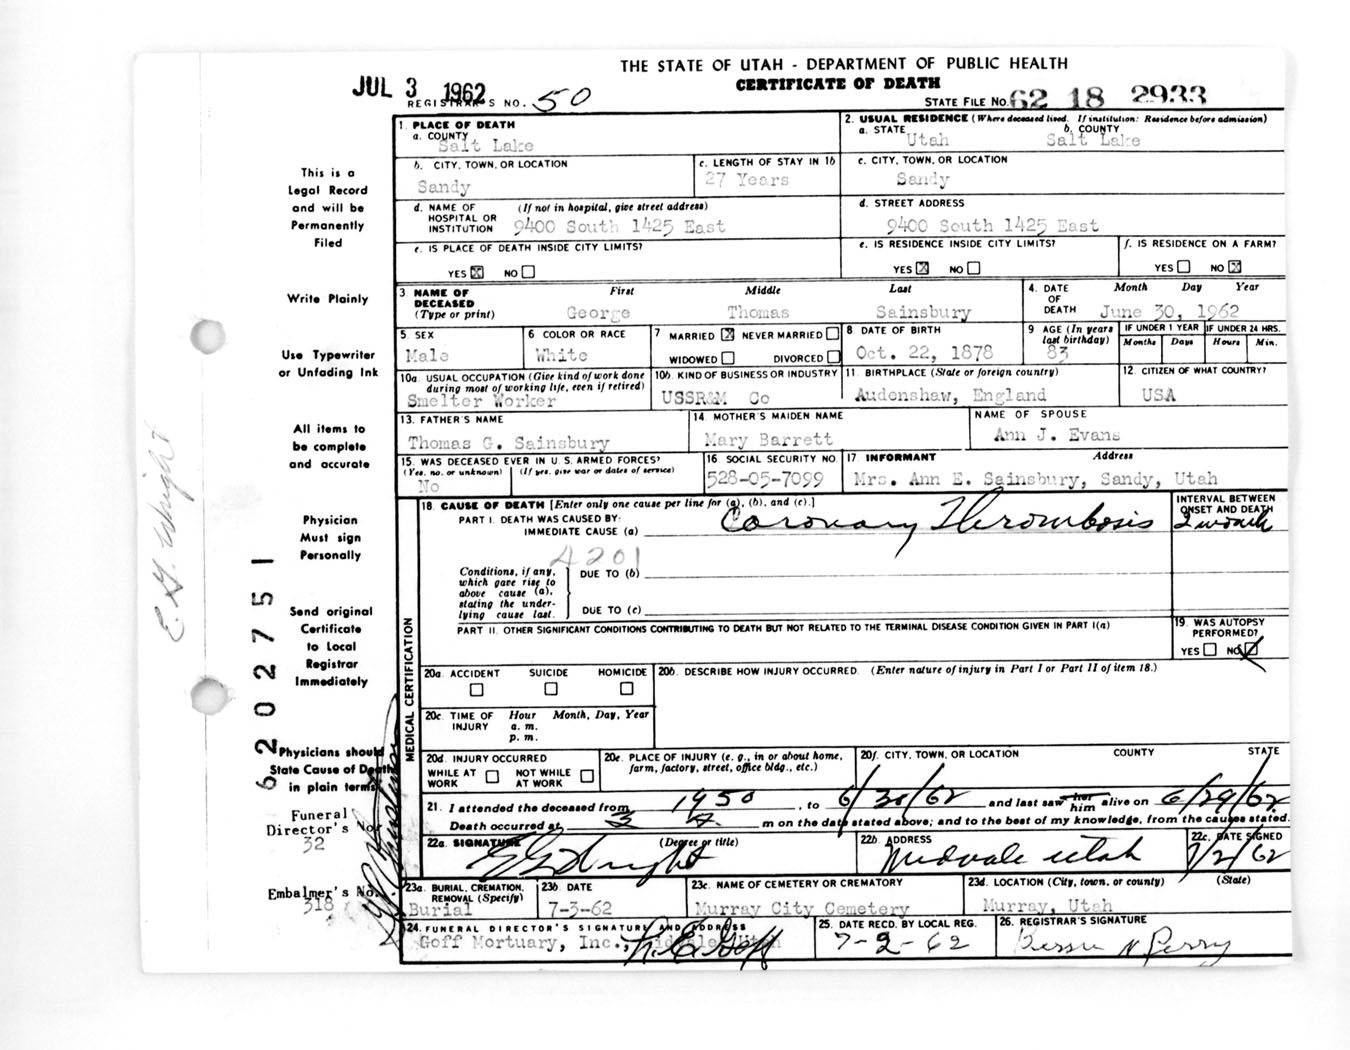 THE STATE OF UTAH - DEPARTMENT OF PUBLIC HEALTH
CERTIFICATE OF DEATH
JUL 3 1962
REGISTRAR'S NO. 50
STATE FILE NO. 62 18 2933
This is a
Legal Record
and will be
Permanently
Filed
Write Plainly
Use Typewriter
or Unfading Ink
All items to
be complete
and accurate
Physician
Must sign
Personally
Send original
Certificate
to Local
Registrar
Immediately
Physicians should
State Cause of Death
in plain terms
Funeral
Director's No.
32
Embalmer's No.
318
E. G. Wright
6202751
1. PLACE OF DEATH
a. COUNTY
Salt Lake
2. USUAL RESIDENCE (Where deceased lived. If institution: Residence before admission)
a. STATE b. COUNTY
Utah Salt Lake
b. CITY, TOWN, OR LOCATION
Sandy
c. LENGTH OF STAY IN 1b
27 Years
c. CITY, TOWN, OR LOCATION
Sandy
d. NAME OF HOSPITAL OR INSTITUTION (If not in hospital, give street address)
9400 South 1425 East
d. STREET ADDRESS
9400 South 1425 East
e. IS PLACE OF DEATH INSIDE CITY LIMITS?
YES X NO
e. IS RESIDENCE INSIDE CITY LIMITS?
YES X NO
f. IS RESIDENCE ON A FARM?
YES NO X
3. NAME OF DECEASED (Type or print)
First Middle Last
George Thomas Sainsbury
4. DATE OF DEATH Month Day Year
June 30, 1962
5. SEX
Male
6 COLOR OR RACE
White
7 MARRIED X NEVER MARRIED
WIDOWED DIVORCED
8 DATE OF BIRTH
Oct. 22, 1878
9 AGE (In years last birthday)
83
IF UNDER 1 YEAR IF UNDER 24 HRS.
Months Days Hours Min.
10a. USUAL OCCUPATION (Give kind of work done during most of working life, even if retired)
Smelter Worker
10b. KIND OF BUSINESS OR INDUSTRY
USSR&M Co
11. BIRTHPLACE (State or foreign country)
Audenshaw, England
12. CITIZEN OF WHAT COUNTRY?
USA
13. FATHER'S NAME
Thomas G. Sainsbury
14. MOTHER'S MAIDEN NAME
Mary Barrett
NAME OF SPOUSE
Ann J. Evans
15. WAS DECEASED EVER IN U. S. ARMED FORCES?
(Yes, no, or unknown) (If yes, give war or dates of service)
No
16. SOCIAL SECURITY NO.
528-05-7099
17. INFORMANT Address
Mrs. Ann E. Sainsbury, Sandy, Utah
MEDICAL CERTIFICATION
18. CAUSE OF DEATH [Enter only one cause per line for (a), (b), and (c).]
PART I. DEATH WAS CAUSED BY:
IMMEDIATE CAUSE (a) Coronary Thrombosis
INTERVAL BETWEEN ONSET AND DEATH
2 month
4201
Conditions, if any, which gave rise to above cause (a), stating the underlying cause last.
DUE TO (b)
DUE TO (c)
PART II. OTHER SIGNIFICANT CONDITIONS CONTRIBUTING TO DEATH BUT NOT RELATED TO THE TERMINAL DISEASE CONDITION GIVEN IN PART I(a)
19. WAS AUTOPSY PERFORMED?
YES NO X
20a. ACCIDENT SUICIDE HOMICIDE
20b. DESCRIBE HOW INJURY OCCURRED. (Enter nature of injury in Part I or Part II of item 18.)
20c. TIME OF INJURY Hour Month, Day, Year
a. m.
p. m.
20d. INJURY OCCURRED
WHILE AT WORK NOT WHILE AT WORK
20e. PLACE OF INJURY (e. g., in or about home, farm, factory, street, office bldg., etc.)
20f. CITY, TOWN, OR LOCATION COUNTY STATE
21. I attended the deceased from 1950, to 6/30/62 and last saw her him alive on 6/29/62
Death occurred at 3 m on the date stated above; and to the best of my knowledge, from the causes stated.
22a. SIGNATURE (Degree or title)
E G Wright
22b. ADDRESS
Midvale Utah
22c. DATE SIGNED
7/2/62
23a. BURIAL, CREMATION, REMOVAL (Specify)
Burial
23b. DATE
7-3-62
23c. NAME OF CEMETERY OR CREMATORY
Murray City Cemetery
23d. LOCATION (City, town, or county) (State)
Murray, Utah
24. FUNERAL DIRECTOR'S SIGNATURE AND ADDRESS
Goff Mortuary, Inc., Midvale, Utah
R. E. Goff
25. DATE RECD. BY LOCAL REG.
7-2-62
26. REGISTRAR'S SIGNATURE
Bessie N Perry